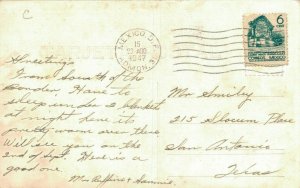 C
MEXICO D.F.
15
27 AGO
1947
6
Greetings
From South of the
Border. Have to
sleep under 2 blanket
at night here its
pretty warm over there
Will see you on the
2nd of Sept. Here is a
good one.
Mrs Ruffino + Sammie
Mr Smiley
215 Slocum Place
San Antonio
Texas